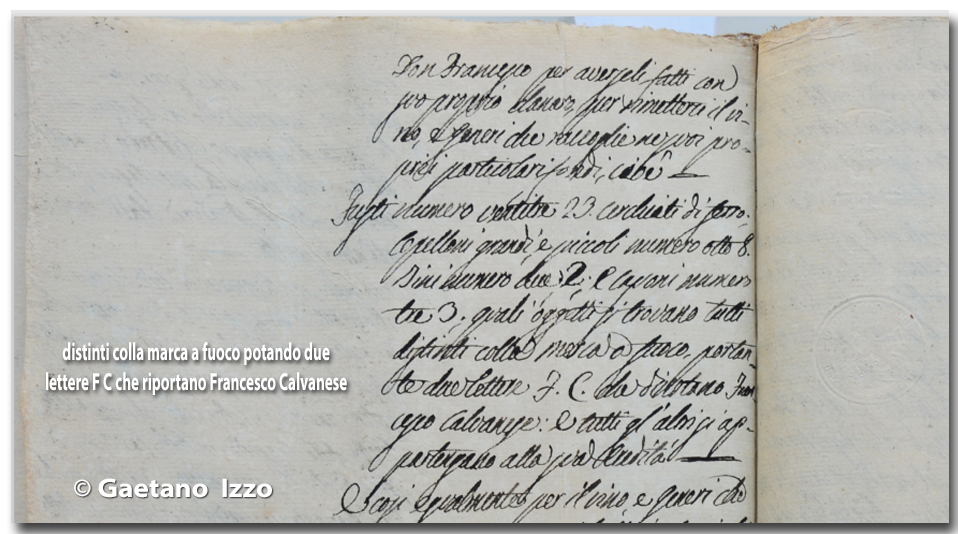 Don Francesco per averseli fatti con
suo proprio denaro, per rimettere il vi-
no, e generi che raccoglie ne suoi pro-
prj particolari fondi, cioè
Fusti numero ventitre 23. cerchiati di ferro.
Copelloni grandi, e piccoli numero otto 8.
Tini numero due 2; e casoni numero
tre 3. quali oggetti si trovano tutti
distinti colla marca a fuoco, portan-
te due lettere F. C. che dinotano Fran
cesco Calvanese: e tutti gl'altri si ap-
partengano alla sud Eredità
E così egualmente per il vino, e generi che
distinti colla marca a fuoco potando due
lettere F C che riportano Francesco Calvanese
© Gaetano Izzo